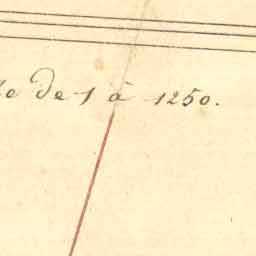 de 1 à 1250.